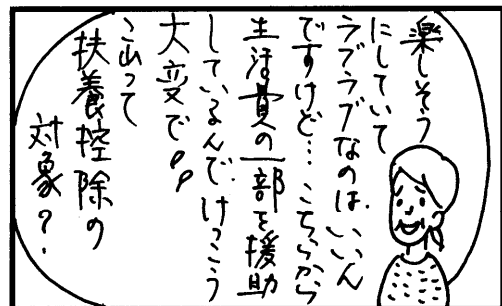 楽しそう
にしていて
ラブラブなのは、いいん
ですけど…こちらから
生活費の一部を援助
しているんで、けっこう
大変で〃
これって
扶養控除の
対象?